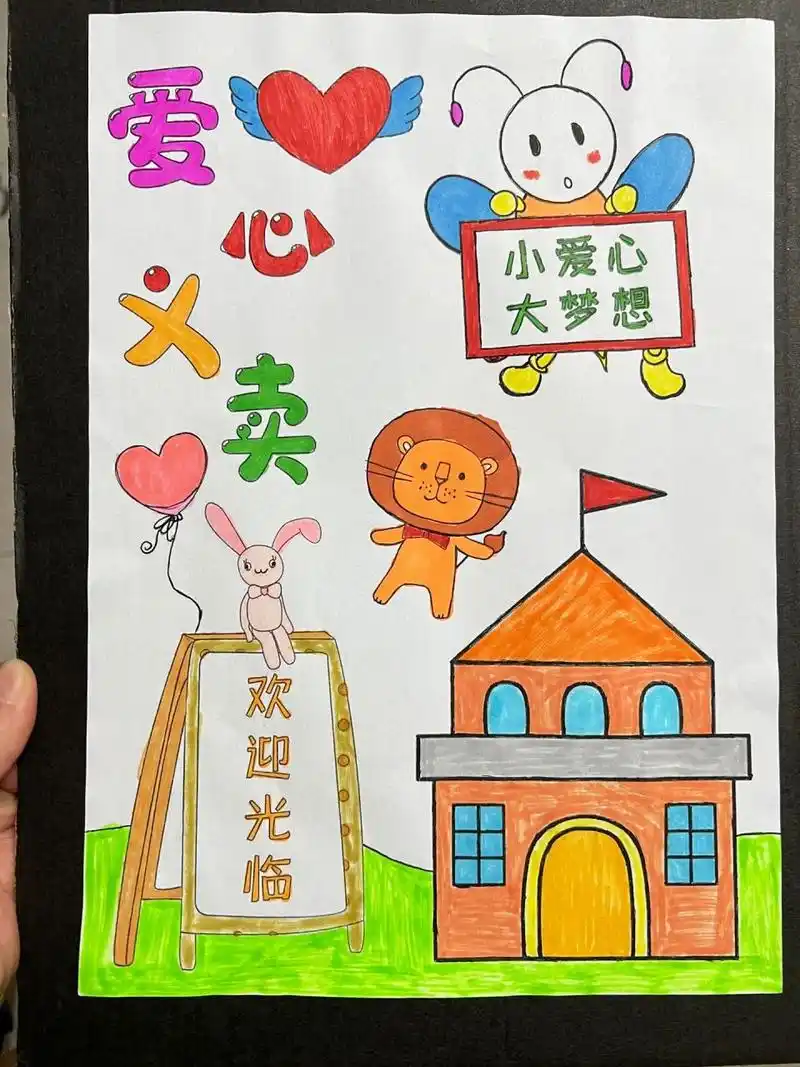 爱心义卖
小爱心
大梦想
欢迎光临